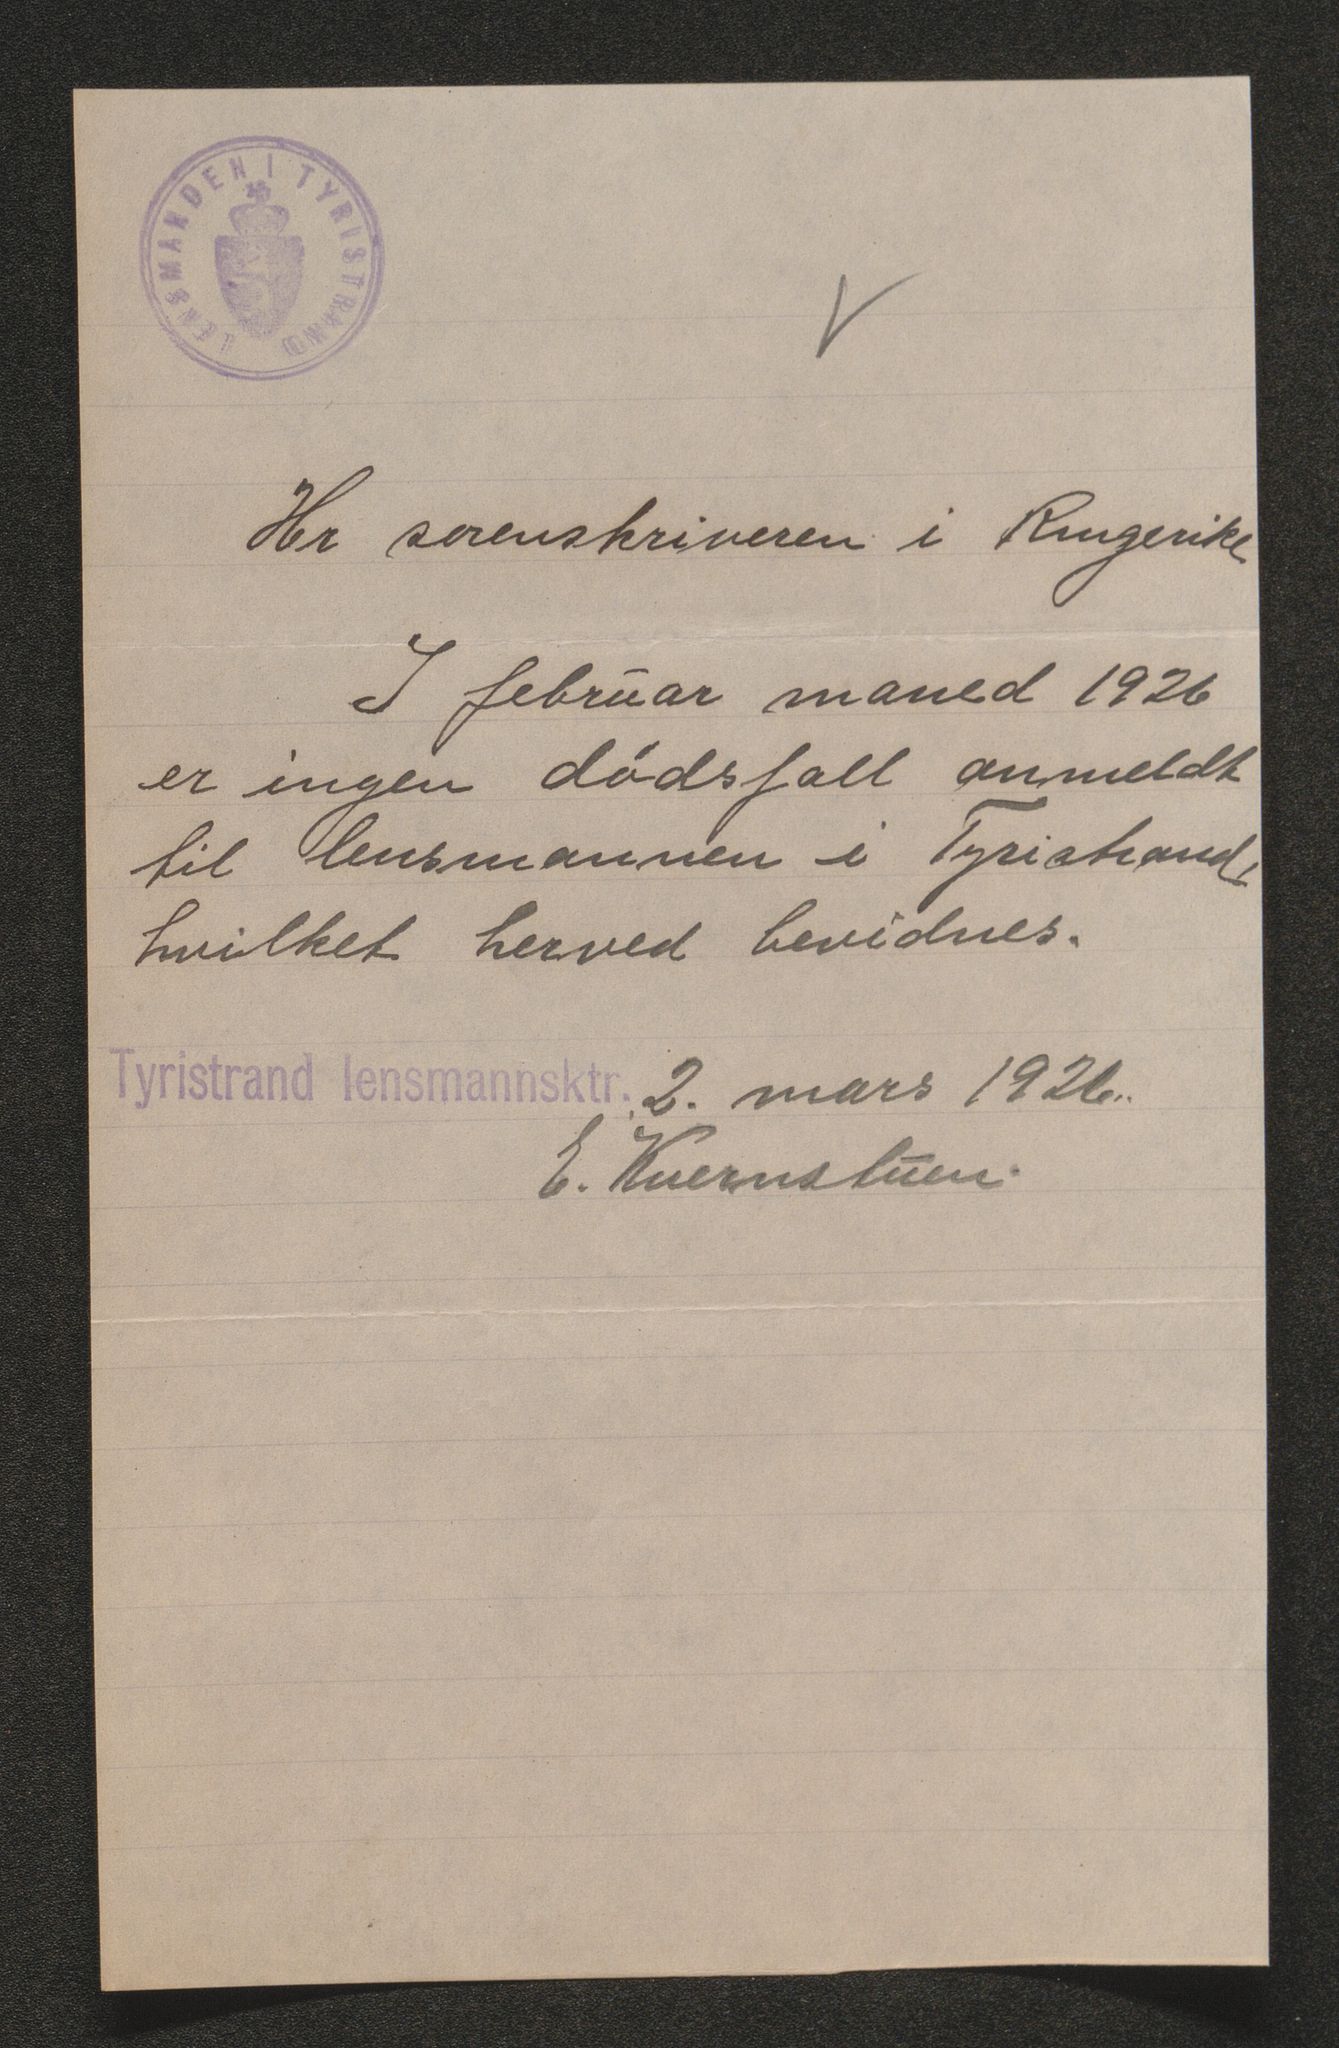 LENSMANDEN I TYRISTRAND
Hr sorenskriveren i Ringerike
I februar maned 1926
er ingen dödsfall anmeldt
til lensmannen i Tyristrand,
hvilket herved bevidnes.
Tyristrand lensmannsktr. 2. mars 1926.
E. Kvernstuen.